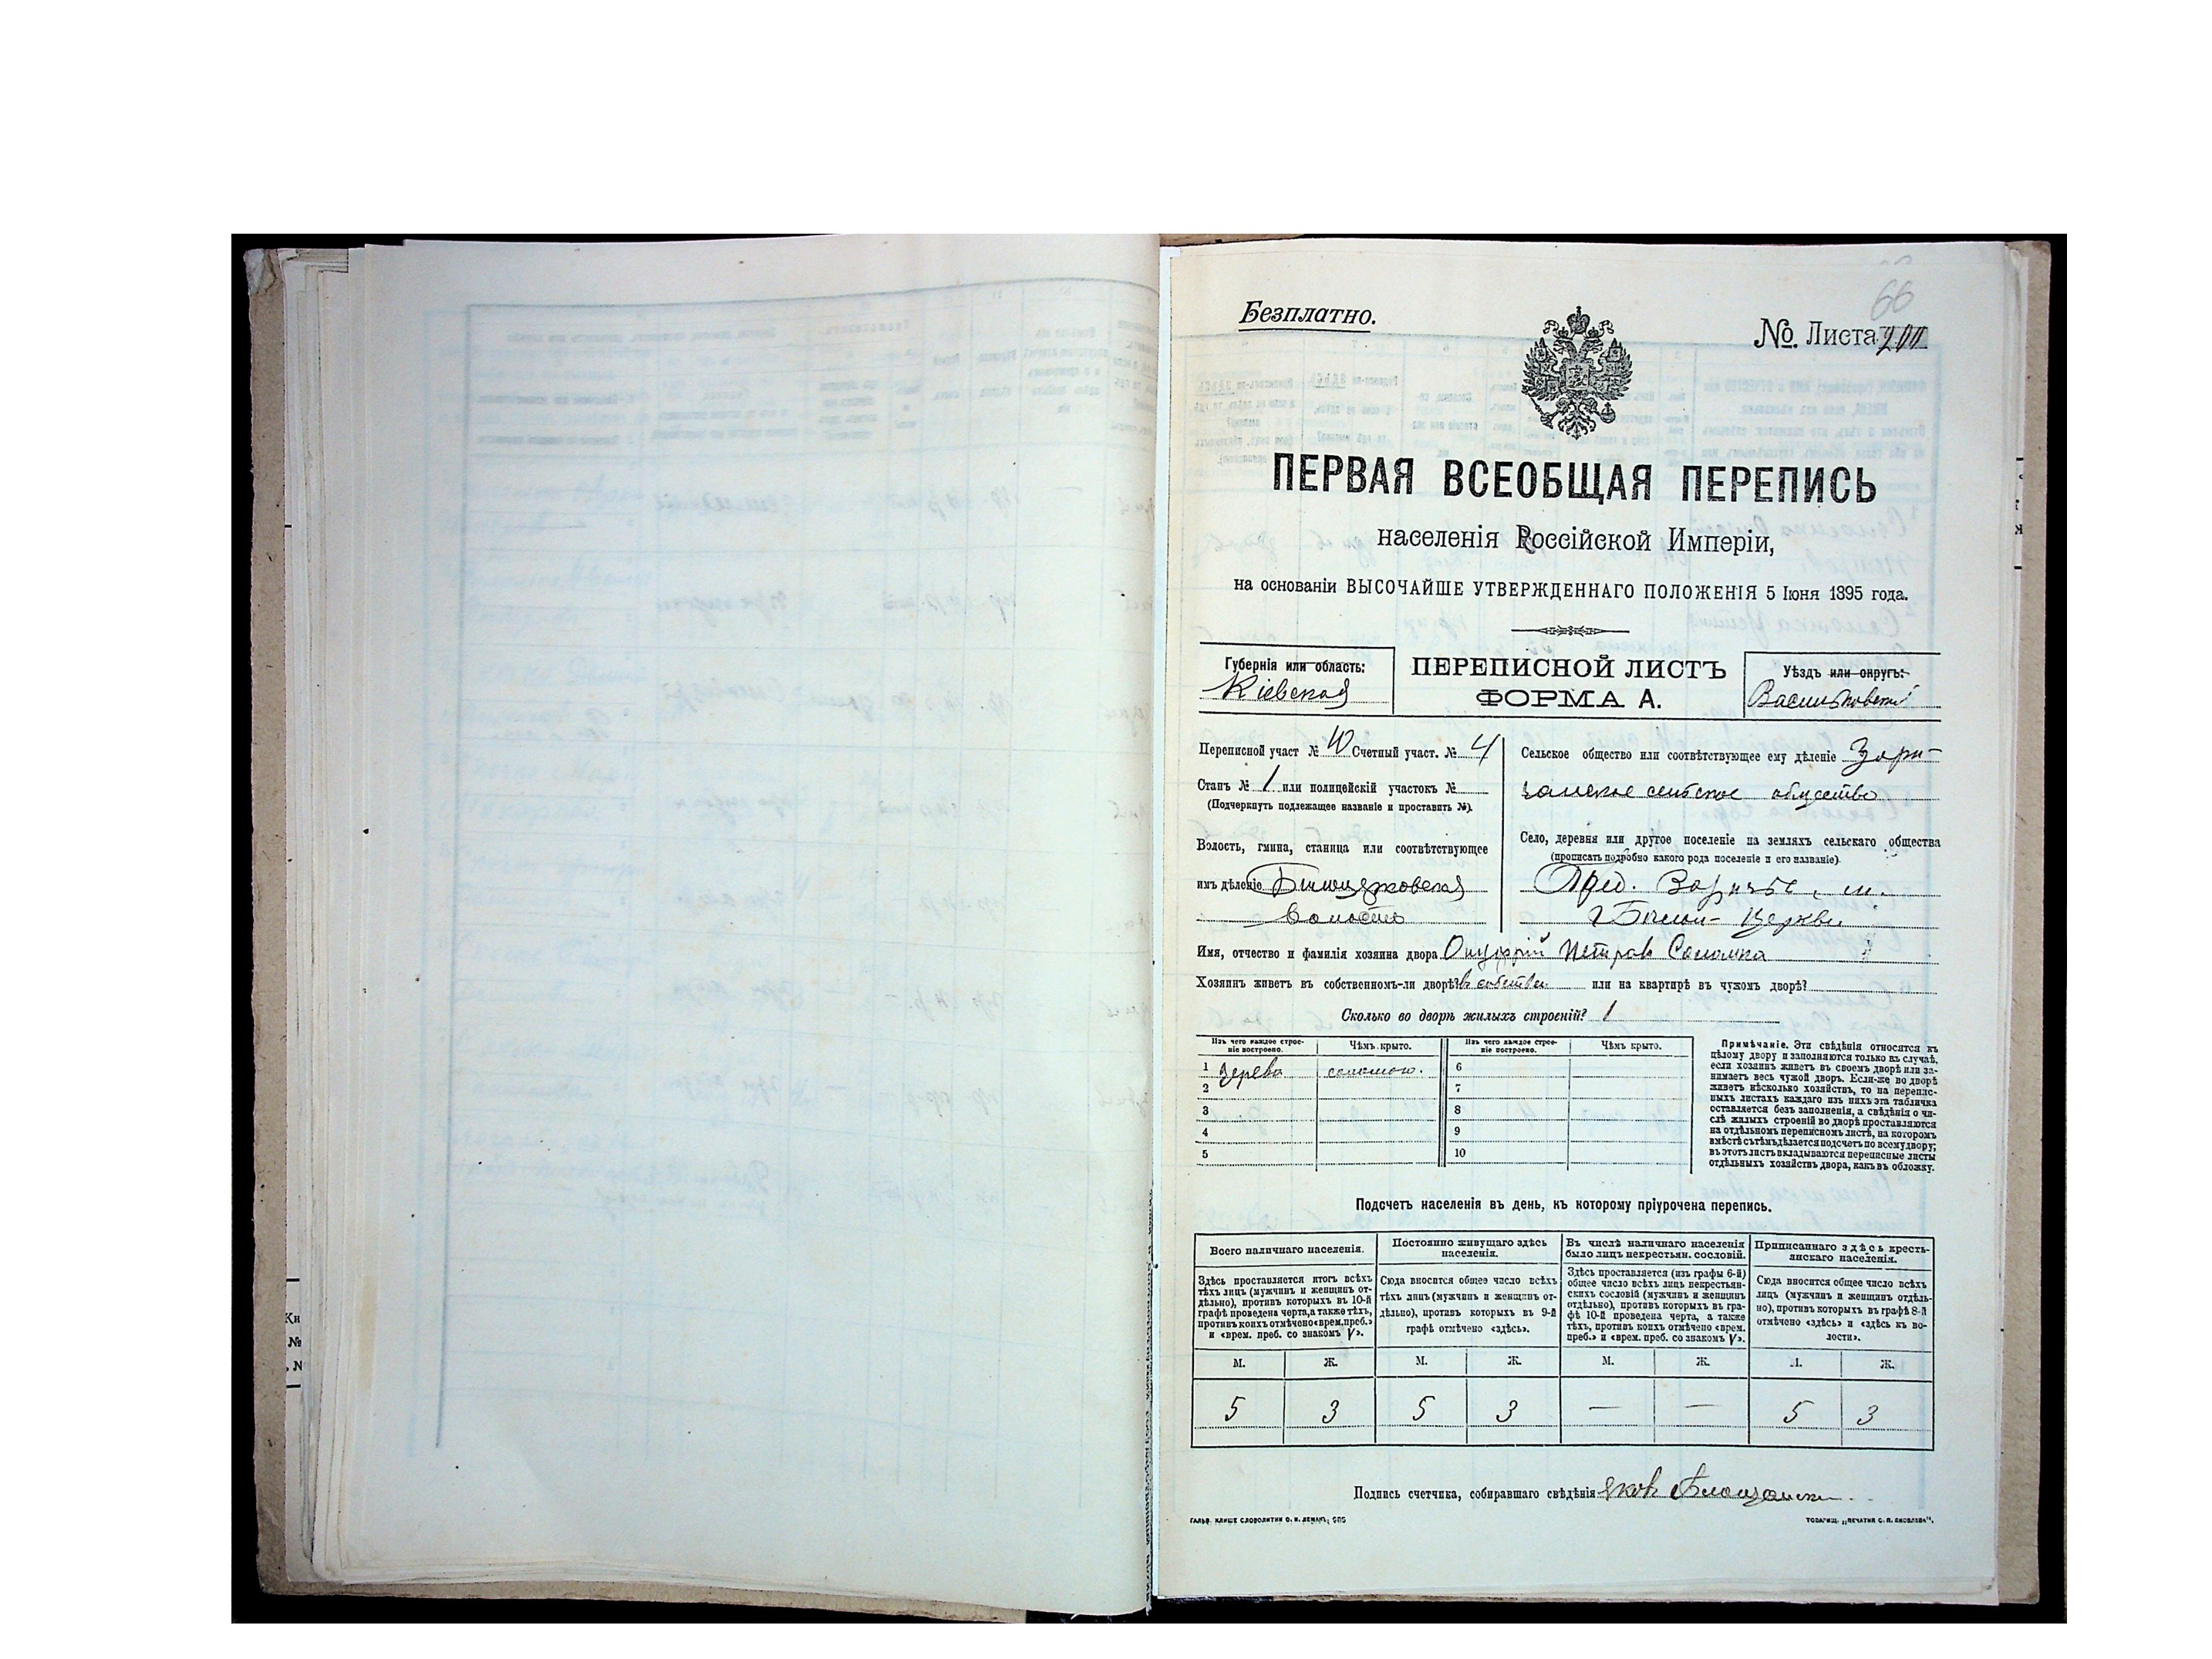 66
Безплатно.
№. Листа
ПЕРВАЯ ВСЕОБЩАЯ ПЕРЕПИСЬ
населенія Россійской Имперіи,
на основаніи ВЫСОЧАЙШЕ УТВЕРЖДЕННАГО ПОЛОЖЕНІЯ 5 Іюня 1895 года.
Губернія или область:
Кіевская
ПЕРЕПИСНОЙ ЛИСТЪ
ФОРМА А.
Уѣздъ или округъ:
Васильковскій
Переписной участ № 10 Счетный участ. № 4
Станъ № 1 или полицейскій участокъ №
(Подчеркнуть подлежащее названіе и проставить №).
Волость, гмина, станица или соотвѣтствующее
имъ дѣленіе Бѣлоцерковская
волость
Сельское общество или соотвѣтствующее ему дѣленіе Зари-
чанское сельское общество
Село, деревня или другое поселеніе на земляхъ сельскаго общества
(прописать подробно какого рода поселеніе и его названіе)
Пред. Заричье, м.
Бѣлой-Церкви
Имя, отчество и фамилія хозяина двора Онуфрій Петров Соломка
Хозяинъ живетъ въ собственномъ-ли дворѣ? въ собствен или на квартирѣ въ чужомъ дворѣ?
Сколько во дворѣ жилыхъ строеній? 1
Изъ чего каждое строе-
ніе построено.
Чѣмъ крыто.
Изъ чего каждое строе-
ніе построено.
Чѣмъ крыто.
1 дерева соломою. 6
2 7
3 8
4 9
5 10
Примѣчаніе. Эти свѣдѣнія относятся къ
цѣлому двору и заполняются только въ случаѣ,
если хозяинъ живетъ въ своемъ дворѣ или за-
нимаетъ весь чужой дворъ. Если-же во дворѣ
живетъ нѣсколько хозяйствъ, то на перепис-
ныхъ листахъ каждаго изъ нихъ эта табличка
оставляется безъ заполненія, а свѣдѣнія о чи-
слѣ жилыхъ строеній во дворѣ проставляются
на отдѣльномъ переписномъ листѣ, на которомъ
вмѣстѣ съ тѣмъ дѣлается подсчетъ по всему двору;
въ этотъ листъ вкладываются переписные листы
отдѣльныхъ хозяйствъ двора, какъ въ обложку.
Подсчетъ населенія въ день, къ которому пріурочена перепись.
Всего наличнаго населенія.
Здѣсь проставляется итогъ всѣхъ
тѣхъ лицъ (мужчинъ и женщинъ от-
дѣльно), противъ которыхъ въ 10-й
графѣ проведена черта, а также тѣхъ,
противъ коихъ отмѣчено «врем. преб.»
и «врем. преб. со знакомъ V».
Постоянно живущаго здѣсь
населенія.
Сюда вносится общее число всѣхъ
тѣхъ лицъ (мужчинъ и женщинъ от-
дѣльно), противъ которыхъ въ 9-й
графѣ отмѣчено «здѣсь».
Въ числѣ наличнаго населенія
было лицъ некрестьян. сословій.
Здѣсь проставляется (изъ графы 6-й)
общее число всѣхъ лицъ некрестьян-
скихъ сословій (мужчинъ и женщинъ
отдѣльно), противъ которыхъ въ гра-
фѣ 10-й проведена черта, а также
тѣхъ, противъ коихъ отмѣчено «врем.
преб.» и «врем. преб. со знакомъ V».
Приписаннаго здѣсь кресть-
янскаго населенія.
Сюда вносится общее число всѣхъ
лицъ (мужчинъ и женщинъ отдѣль-
но), противъ которыхъ въ графѣ 8-й
отмѣчено «здѣсь» и «здѣсь къ во-
лости».
М. Ж. М. Ж. М. Ж. М. Ж.
5 3 5 3 — — 5 3
Подпись счетчика, собиравшаго свѣдѣнія
ГАЛЬВ. КЛИШЕ СЛОВОЛИТНИ О. И. ЛЕМАНЪ, СПБ
ТОВАРИЩ. „ПЕЧАТНЯ С. П. ЯКОВЛЕВА“.